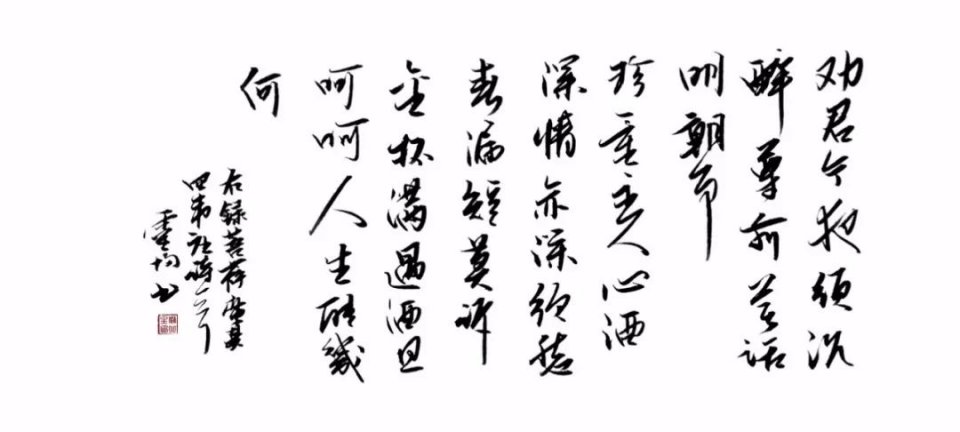 劝君今夜须沉
醉尊前莫话
明朝事
珍重主人心酒
深情亦深须愁
春漏短莫诉
金杯满遇酒且
呵呵人生能幾
何
右録菩萨蛮其
四韦庄诗一首
书